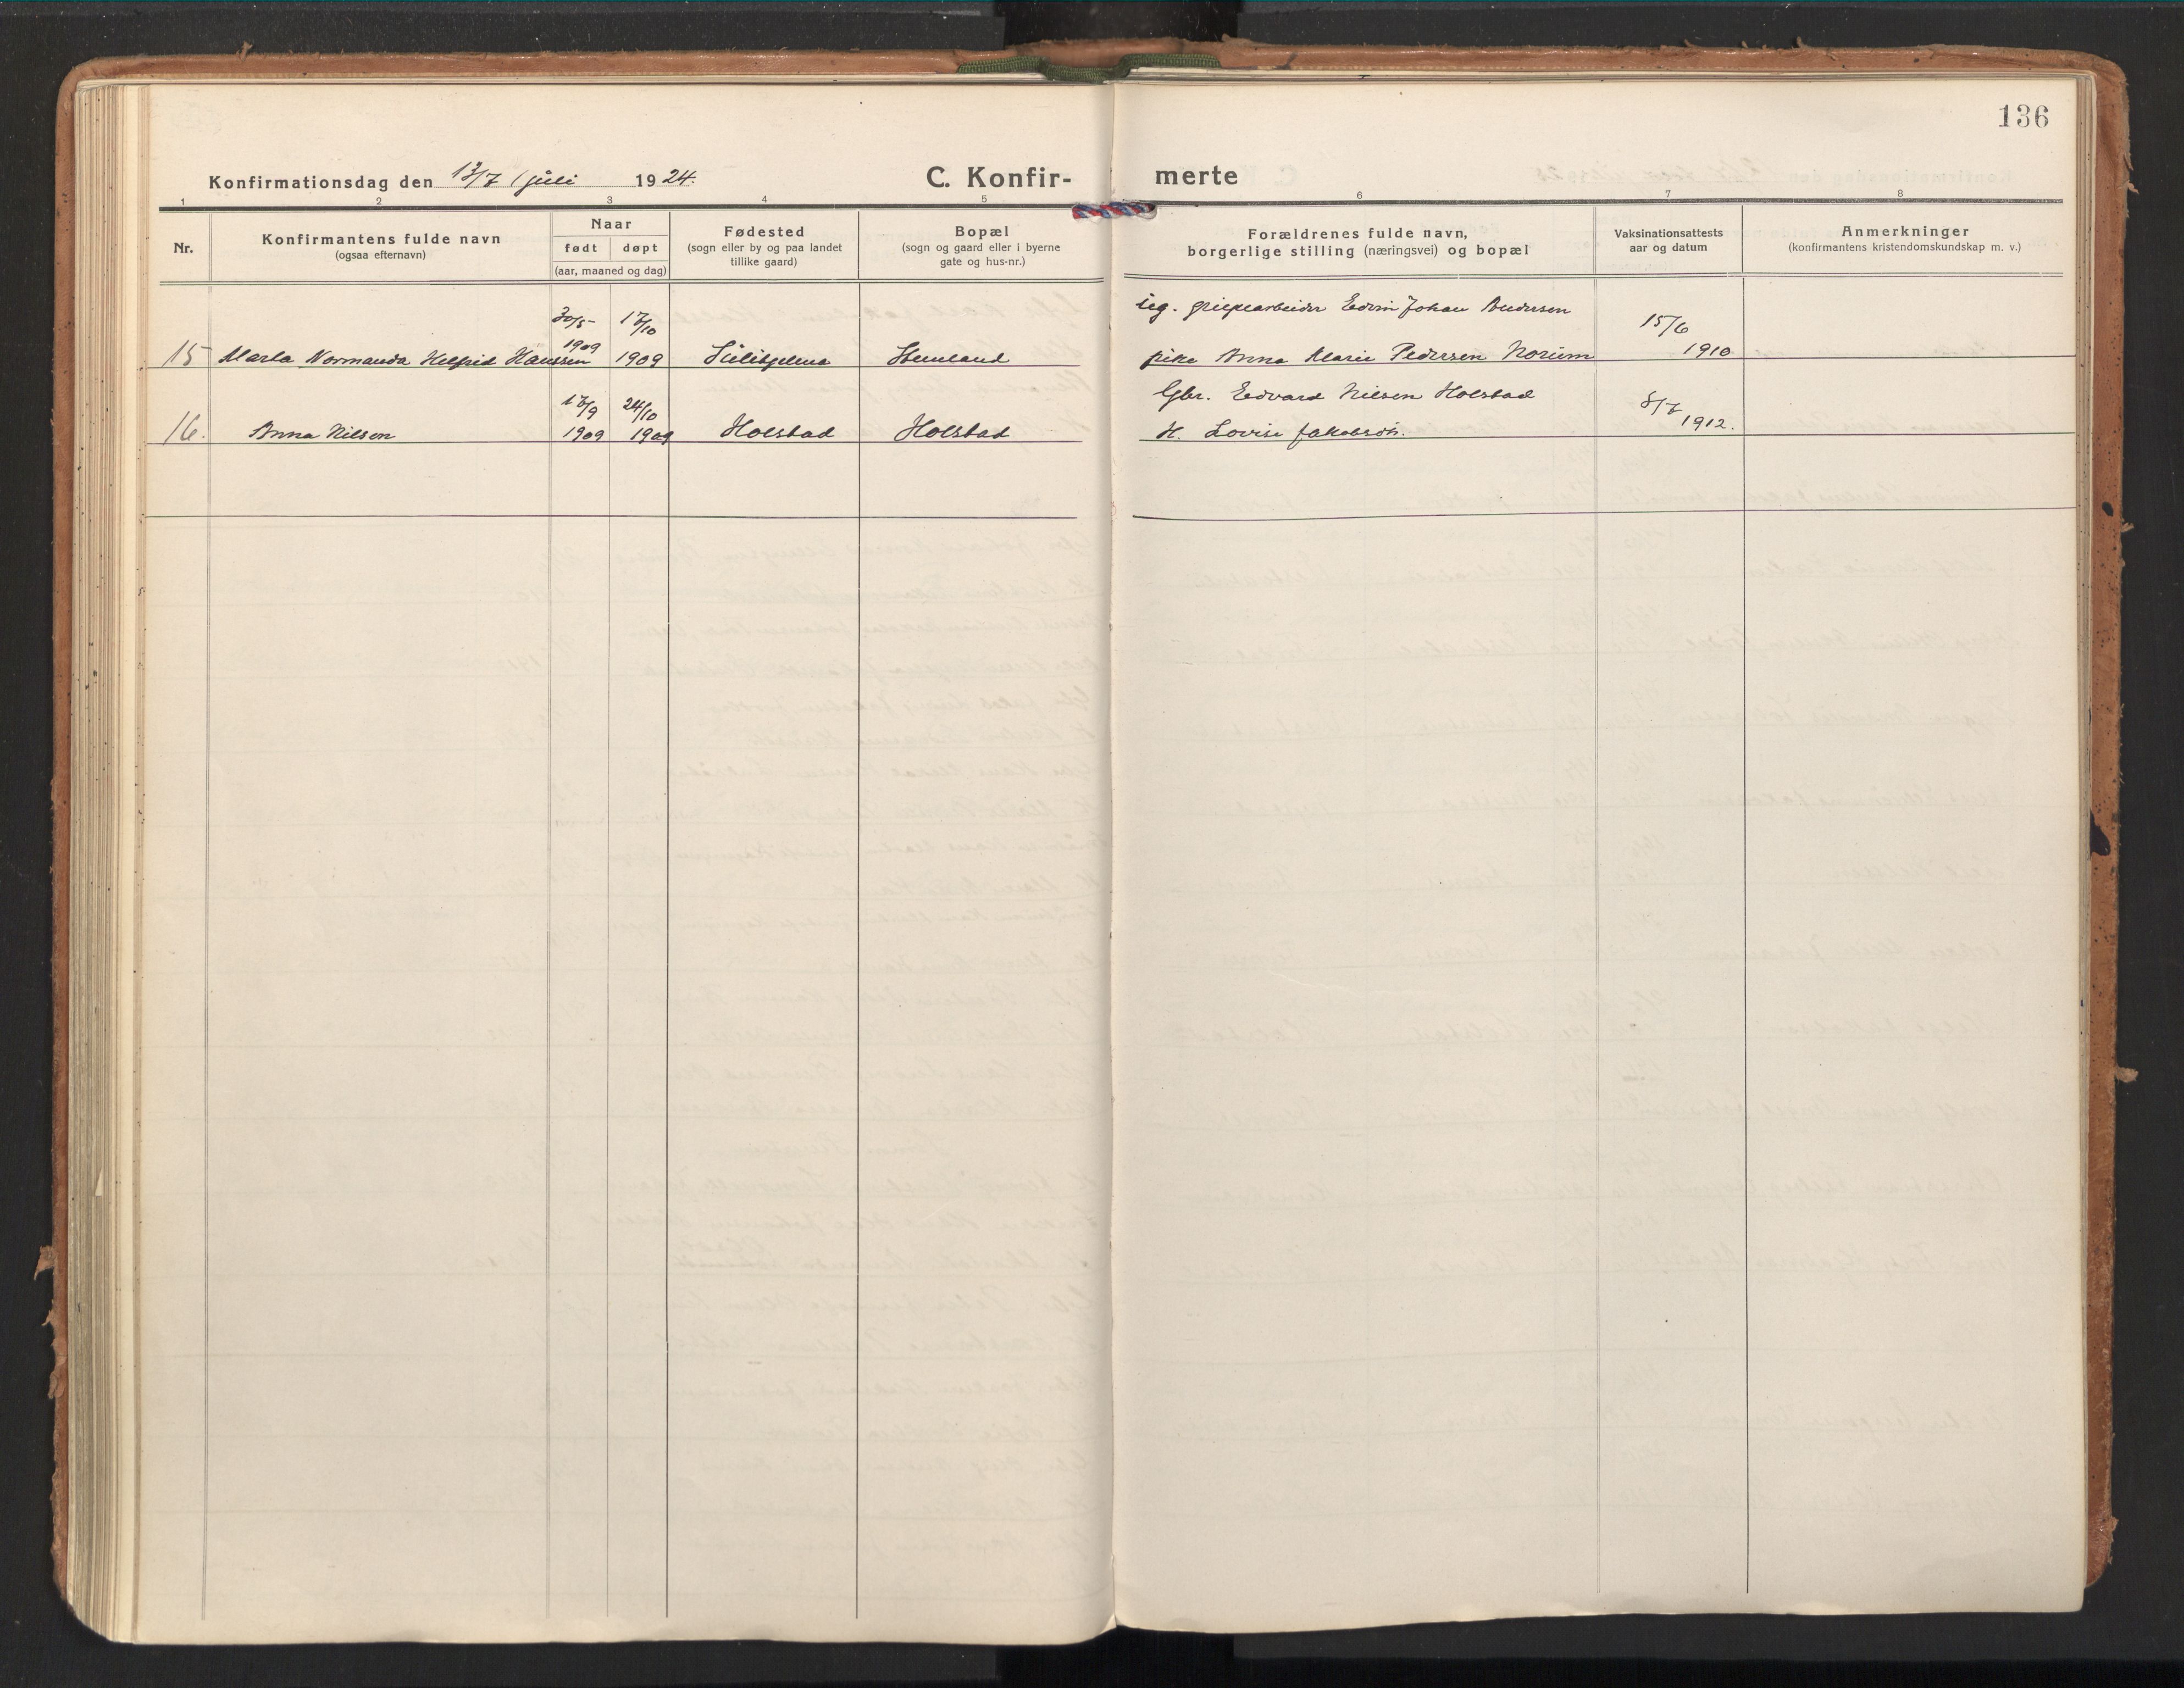 136
Konfirmationsdag den 13/7 juli 1924.
C. Konfir-
merte
1 2 3 4 5 6 7 8
Nr.
Konfirmantens fulde navn
(ogsaa efternavn)
Naar
født døpt
(aar, maaned og dag)
Fødested
(sogn eller by og paa landet
tillike gaard)
Bopæl
(sogn og gaard eller i byerne
gate og hus-nr.)
Forældrenes fulde navn,
borgerlige stilling (næringsvei) og bopæl
Vaksinationsattests
aar og datum
Anmerkninger
(konfirmantens kristendomskundskap m. v.)
30/5 17/10 Edvin Johan Andersen 15/6
1909
15 Marla Normanda Helfrid Hanssen 1909 Sulitjelma pike Anna Marie Pedersen Norum 1910
17/9 24/10 Gbr. Edvard Nilsen Holstad 8/7
16. Anna Nilsen 1909 1909 Holstad Holstad H. Lovise Jakobsdtr. 1912.